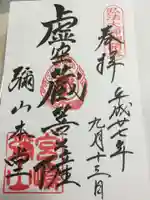 奉拝
平成廿七年
九月十三日
虚空蔵菩薩
彌山本堂